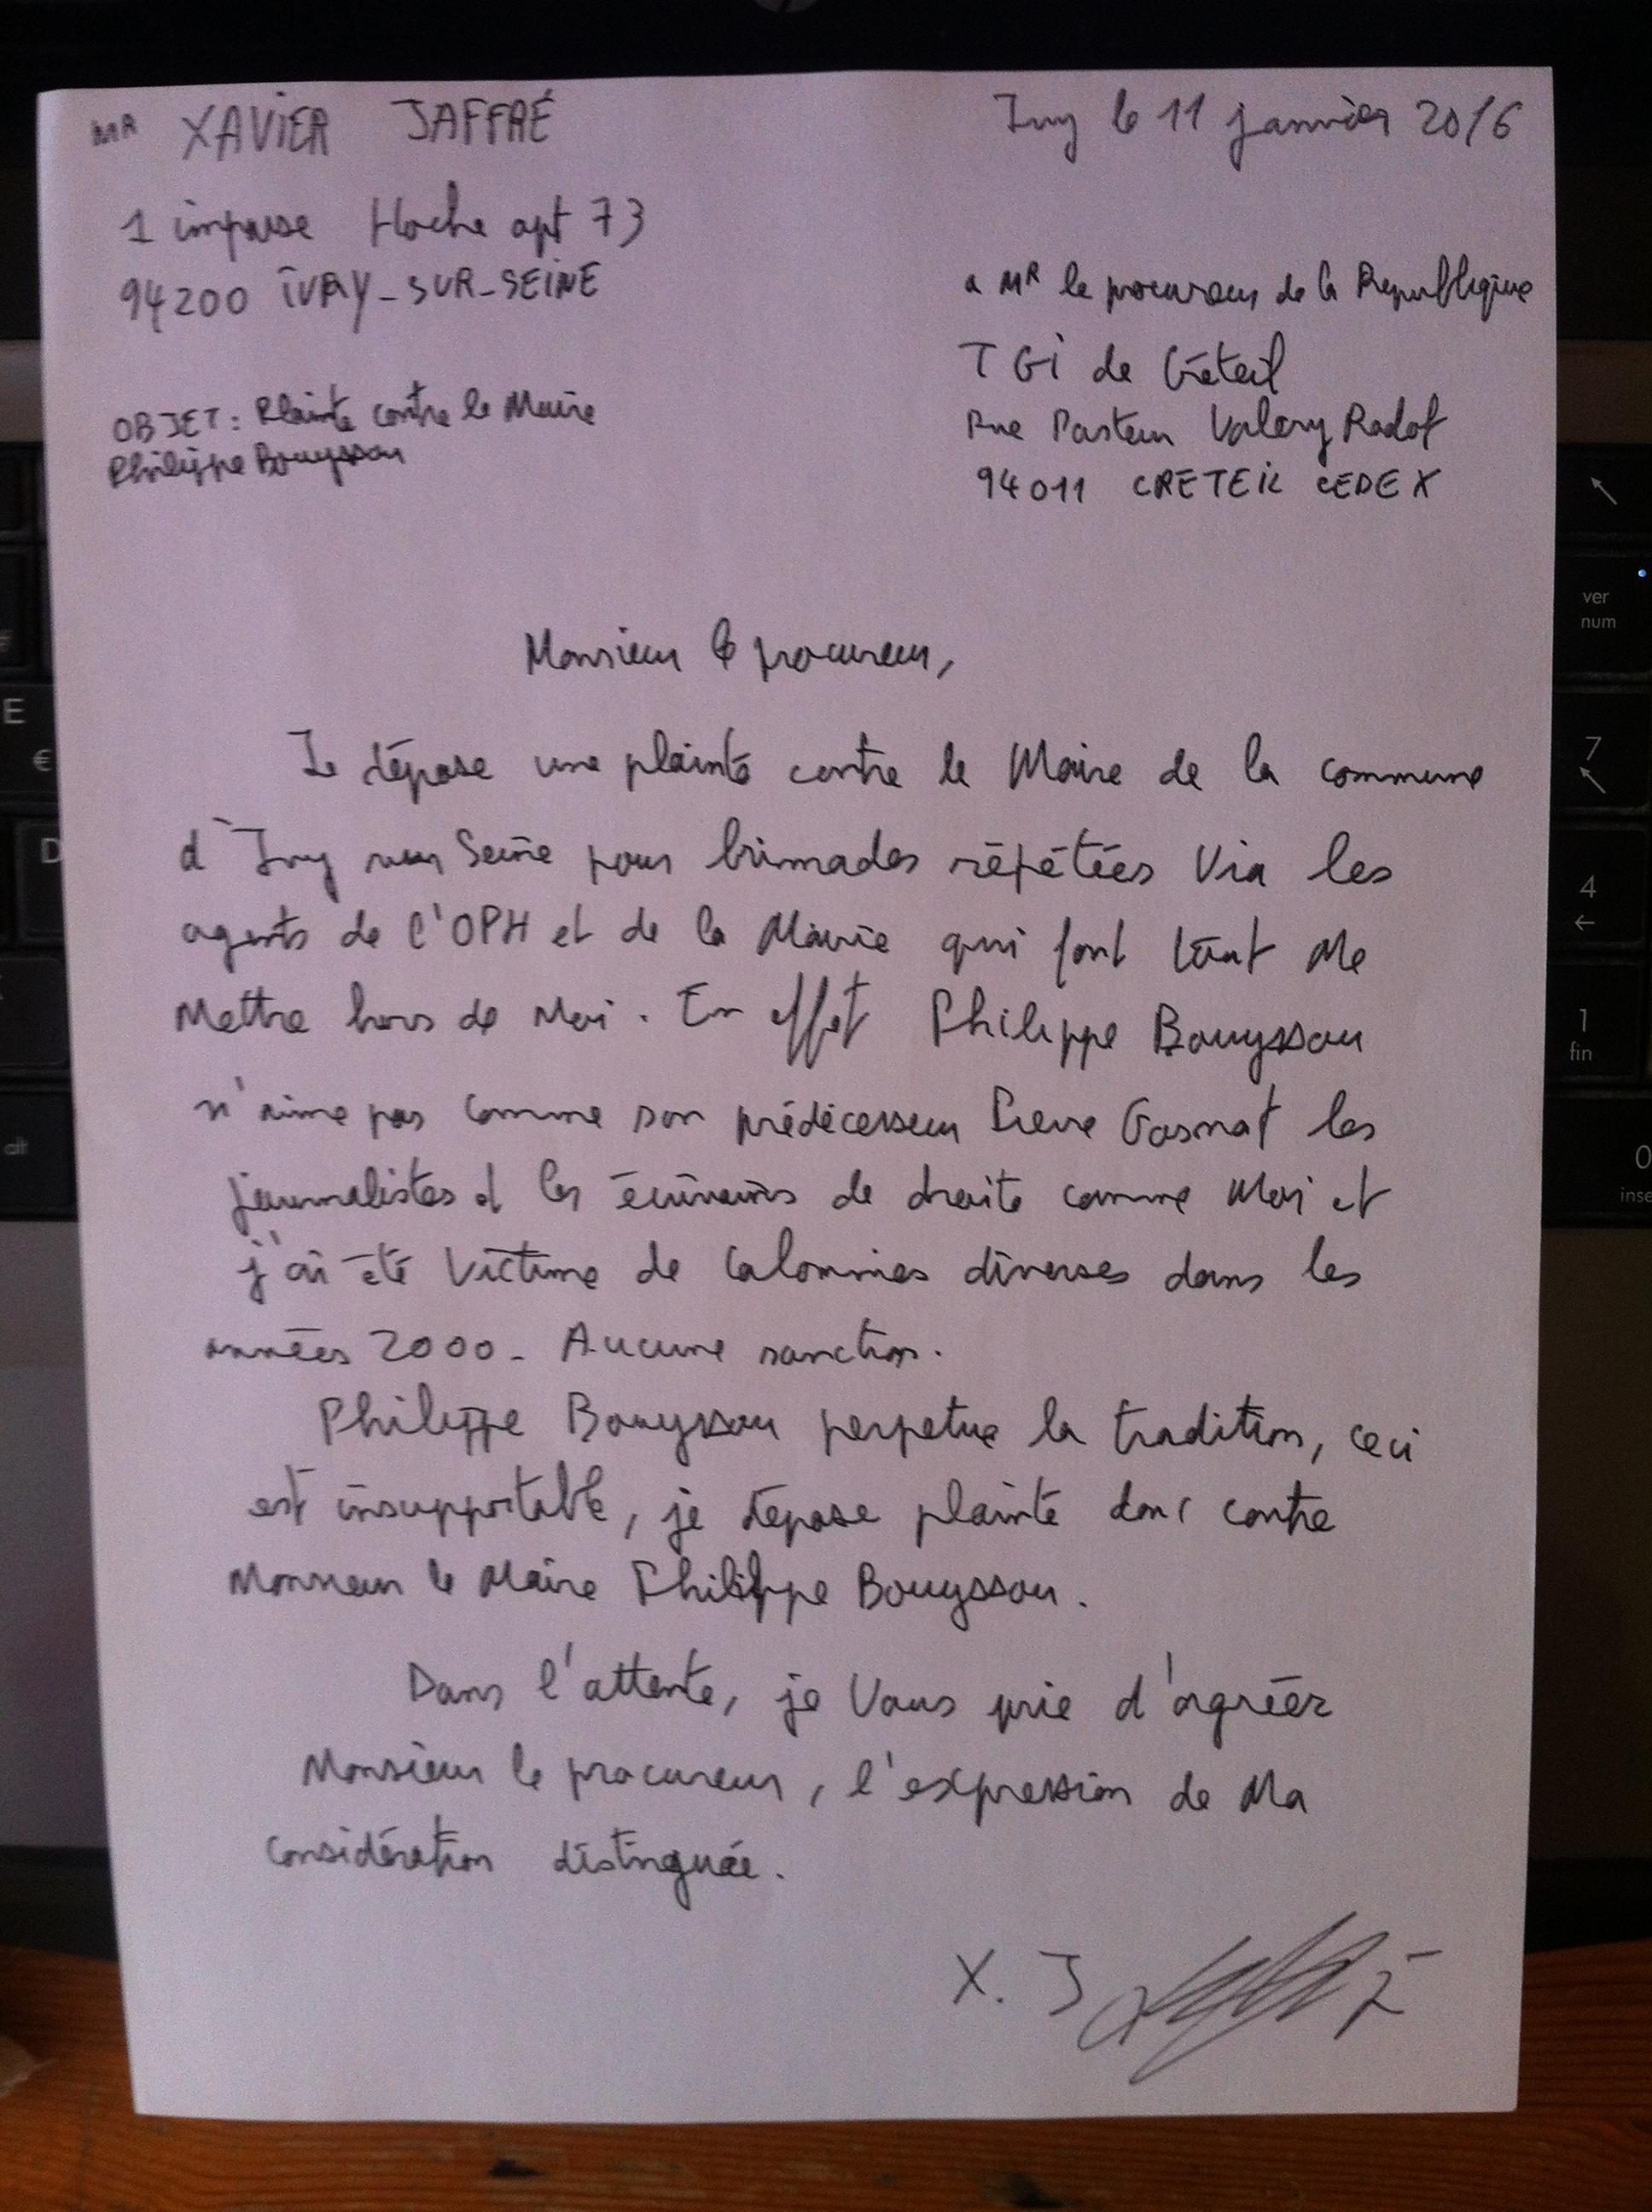 MR XAVIER JAFFRÉ
Ivry le 11 janvier 2016
1 impasse Hoche apt 73
94200 IVRY-SUR-SEINE
a MR le procureur de la République
TGI de Créteil
Rue Pasteur Valery Radot
94011 CRETEIL CEDEX
OBJET: Plainte contre le Maire
Philippe Bouyssou
Monsieur le procureur,
Je dépose une plainte contre le Maire de la commune
d'Ivry sur Seine pour brimades répétées Via les
agents de l'OPH et de la Mairie qui font tout Me
Mettre hors de Moi. En effet Philippe Bouyssou
n'aime pas comme son prédécesseur Pierre Gosnat les
journalistes et les écrivains de droite comme Moi et
j'ai été Victime de Calomnies diverses dans les
années 2000. Aucune sanction.
Philippe Bouyssou perpetue la tradition, ceci
est insupportable, je dépose plainte donc contre
Monsieur le Maire Philippe Bouyssou.
Dans l'attente, je Vous prie d'agréer
Monsieur le procureur, l'expression de Ma
Considération distinguée.
X. Jaffré
E
€
D
alt
ver
num
7
4
1
fin
0
inse